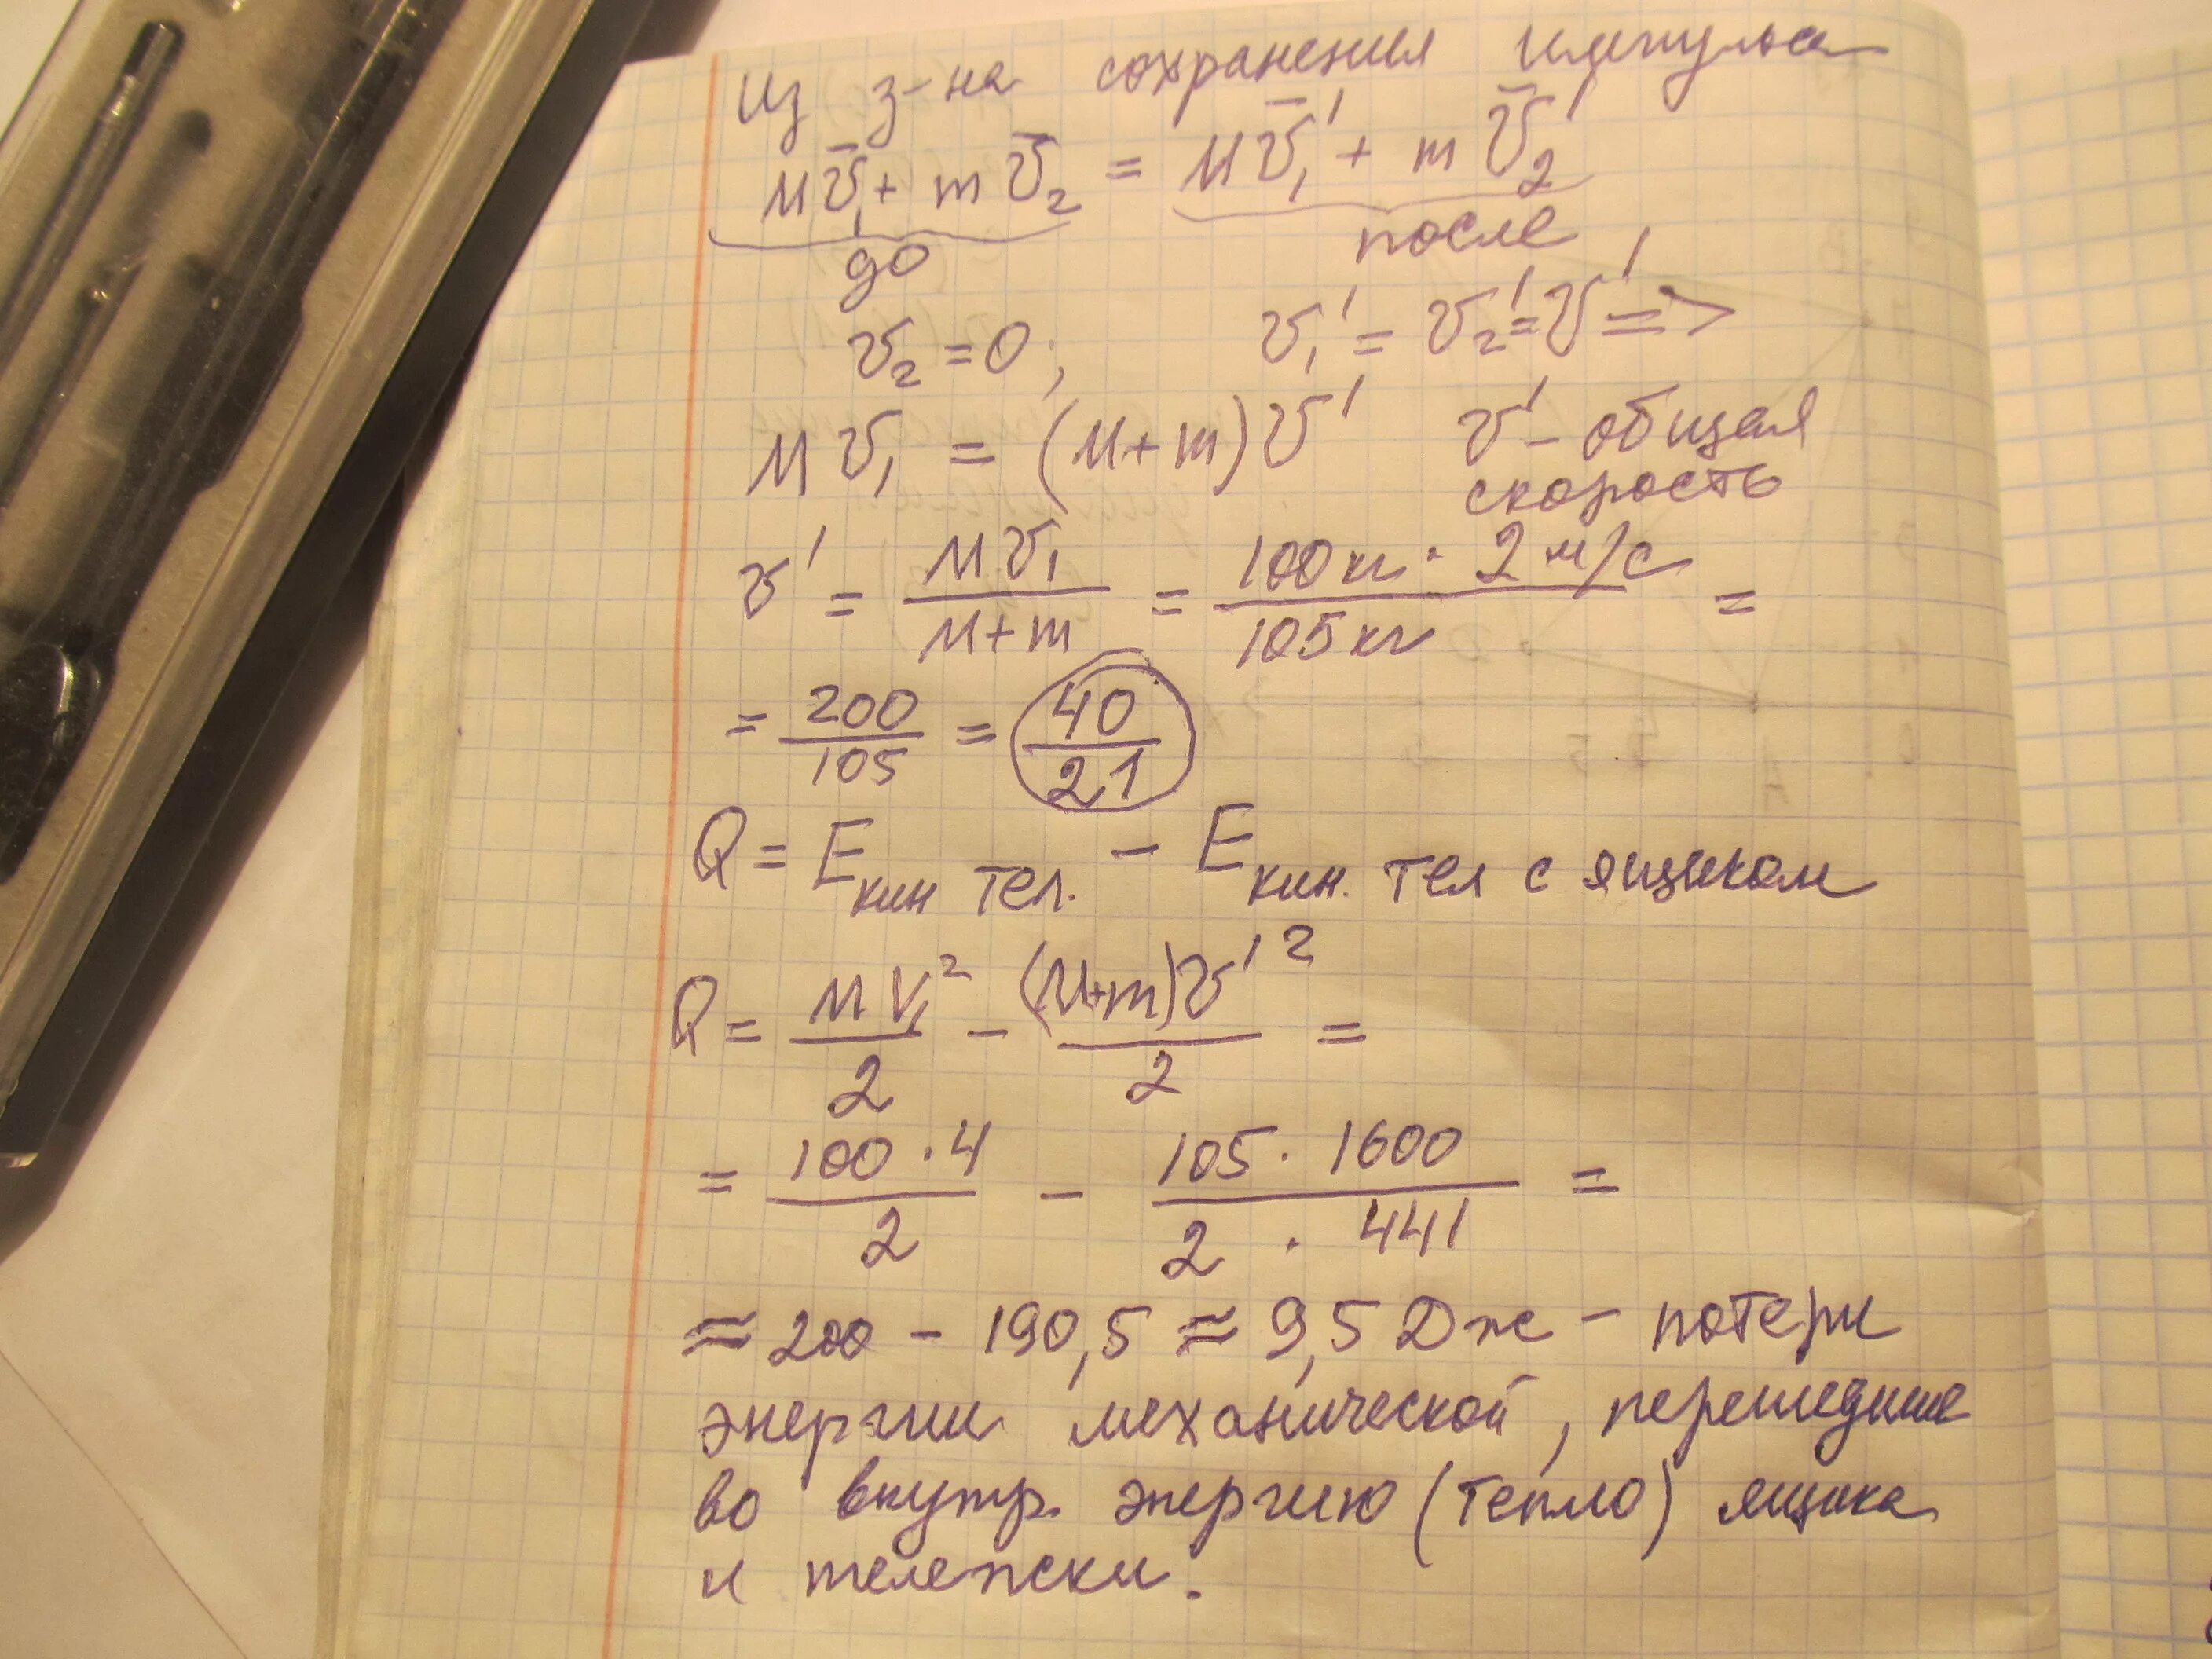 из з-на сохранения импульса
Mv̄₁ + mv̄₂ = Mv̄₁' + mv̄₂'
до после
v₂ = 0; v₁' = v₂' = v' =>
Mv₁ = (M+m)v' v' – общая
скорость
v' = Mv₁/(M+m) = 100 кг · 2 м/с / 105 кг =
= 200/105 = 40/21
Q = E кин тел. – E кин. тел с ящиком
Q = MV₁²/2 – (M+m)v'²/2 =
= 100 · 4 / 2 – 105 · 1600 / 2 · 441 =
≈ 200 – 190,5 ≈ 9,5 Дж – потери
энергии механической, перешедшие
во внутр. энергию (тепло) ящика
и тележки.